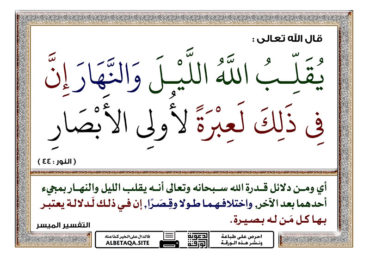 قال الله تعالى :
يُقَلِّـبُ اللَّهُ اللَّيْـلَ وَالنَّهَارَ إِنَّ
فِي ذَلِكَ لَعِبْرَةً لأُولِي الأَبْصَارِ
( النور : ٤٤ )
أي ومـن دلائل قـدرة الله سـبحانه وتعالى أنـه يقلب الليل والنهـار بمجيء
أحدهما بعد الآخر, واختلافهما طولا وقِصَرًا, إن في ذلك لَدلالة يعتبر
بها كل مَن له بصيرة.
التفسير الميسر
احرص على طباعة
ونشر هذه الورقة
فالدال على الخير كفاعله
ALBETAQA.SITE